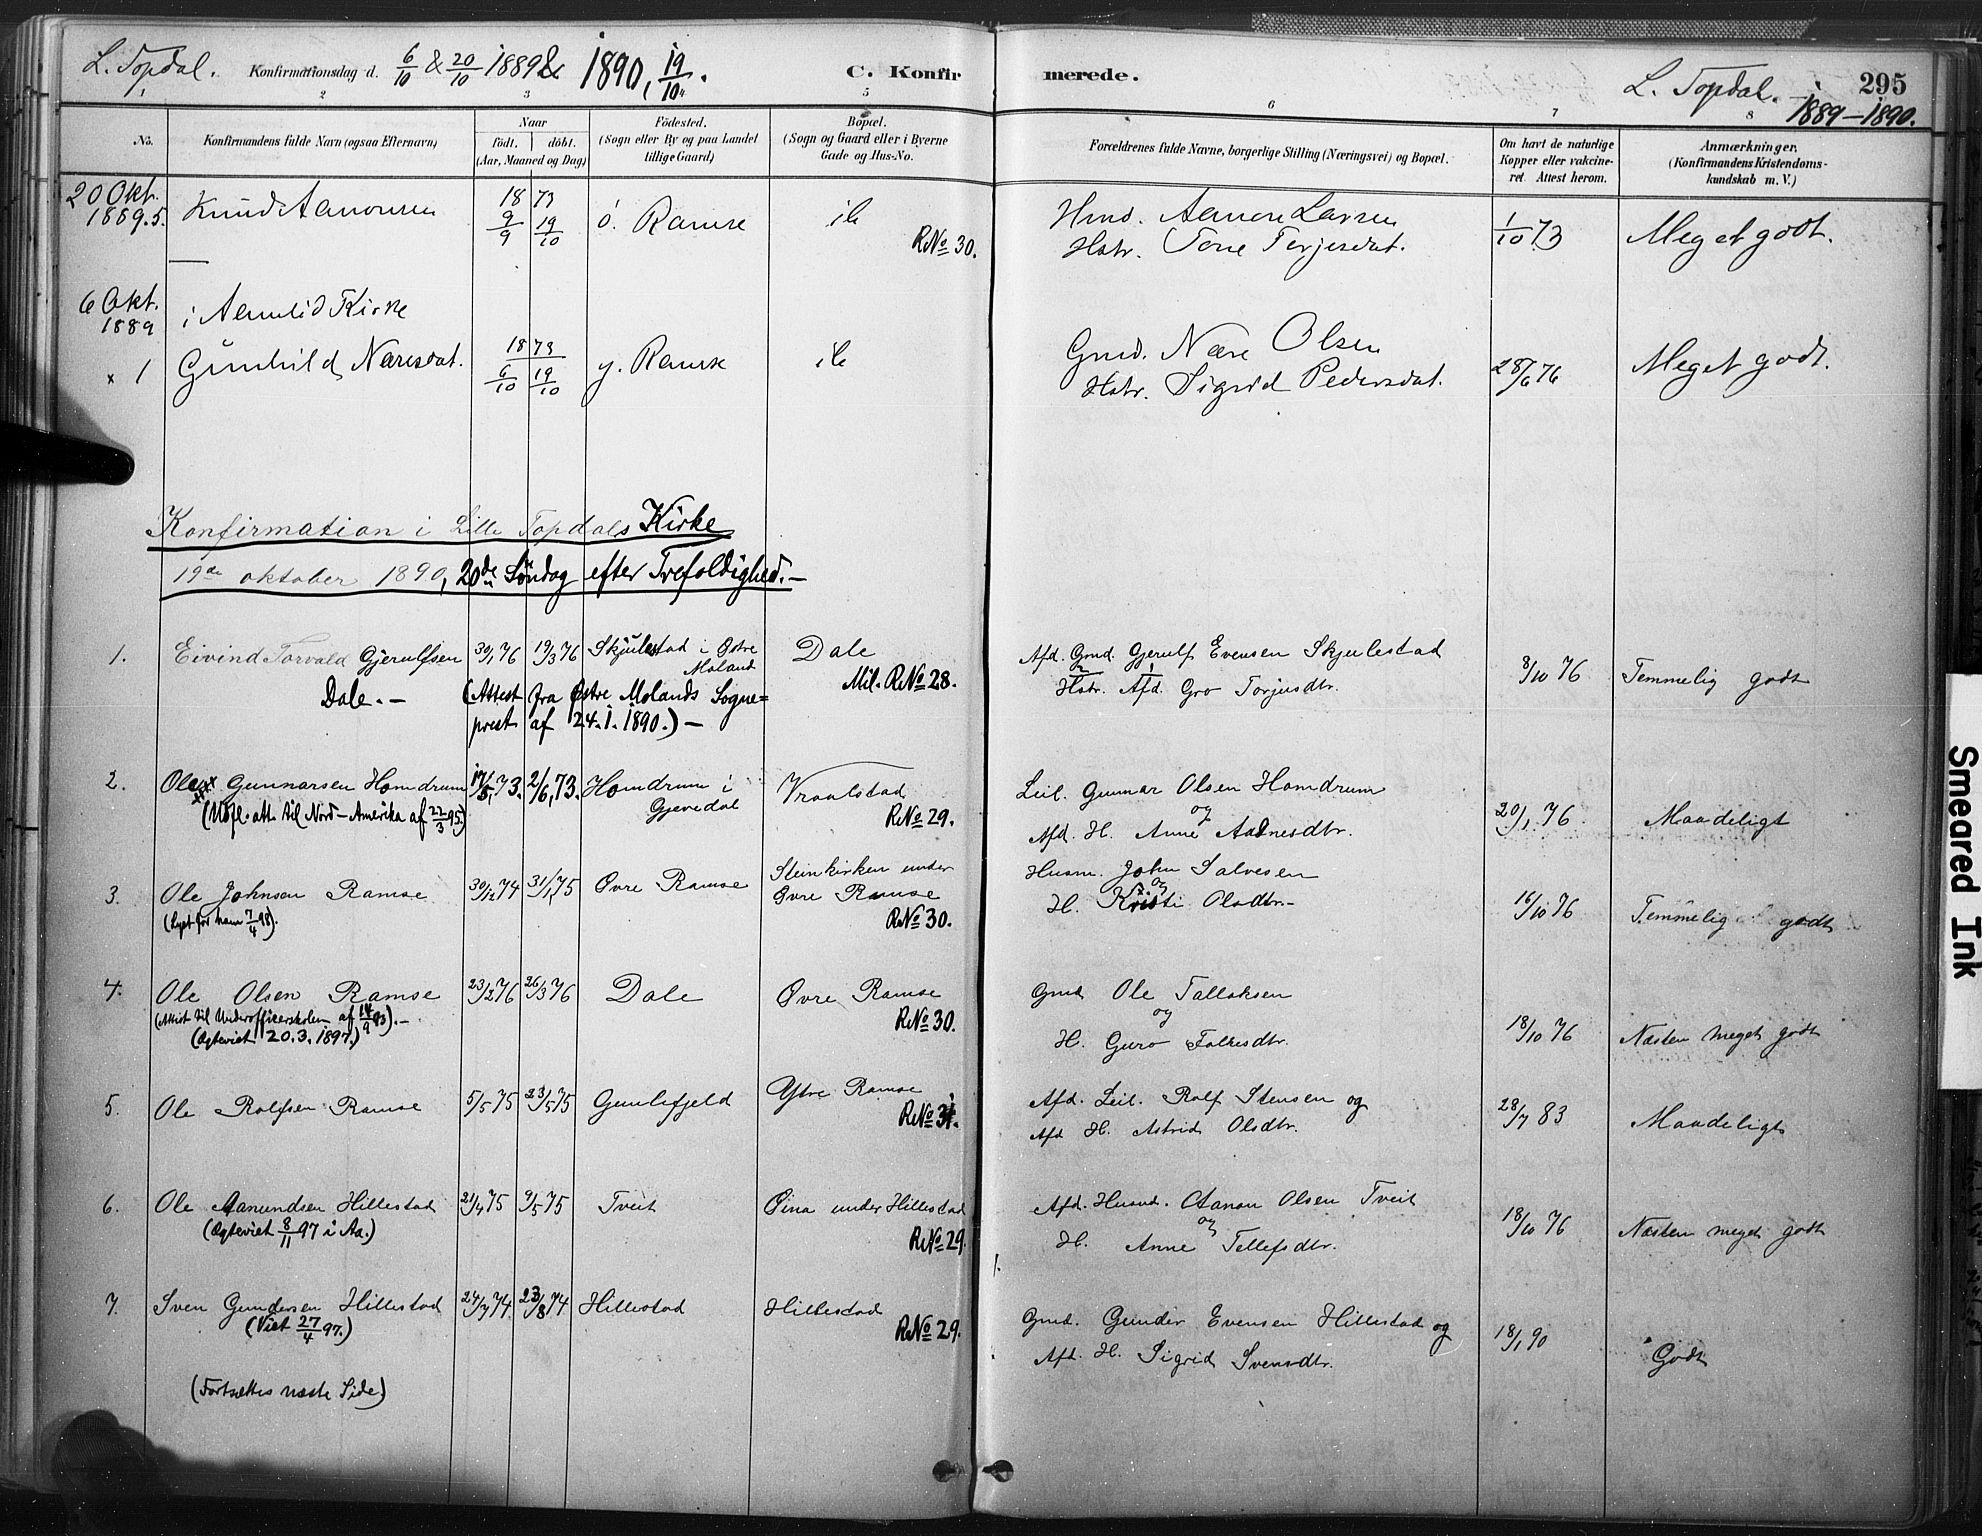 L. Topdal. Konfirmationsdag d. 6/10 & 20/10 1889 & 1890, 19/10. C. Konfirmerede. L. Topdal. 295
1889–1890.
1 2 3 4 5 6 7 8
No. Konfirmandens fulde Navn (ogsaa Efternavn) Naar født. døbt. (Aar, Maaned og Dag) Fødested. (Sogn eller By og paa Landet tillige Gaard) Bopæl. (Sogn og Gaard eller i Byerne Gade og Hus-No. Forældrenes fulde Navne, borgerlige Stilling (Næringsvei) og Bopæl. Om havt de naturlige Kopper eller vakcineret. Attest herom. Anmærkninger, (Konfirmandens Kristendomskundskab m. V.)
20 Okt. 1889. 5. Knud Aanonsen 1873 9/9 19/10 ö. Ramse ib R.No 30. Hmd. Aanon Larsen 1/10 73 Meget godt.
Hstr. Tone Terjesdat.
6 Okt. 1889 i Aamlid Kirke
x 1 Gunhild Næresdat. 1873 6/10 19/10 y. Ramse ib Gmd. Nære Olsen 28/6 76 Meget godt.
Hstr. Sigrid Pedersdat.
Konfirmation i Lille Topdals Kirke
19de oktober 1890, 20de Søndag efter Trefoldighed.–
1. Eivind Torvald Gjerulfsen 30/1 76 19/3 76 Skjulestad i Østre Moland Dale Afd. Gmd. Gjerulf Evensen Skjulestad 8/10 76 Temmelig godt
Dale.– (Attest fra Østre Molands Sogneprest af 24.1.1890.)– Mil. R.No 28. og Hstr. Afd. Gro Torjusdtr.
2. Ole Gunnarsen Homdrum 17/5, 73. 2/6, 73. Homdrum i Gjevedal Vraalstad Leil. Gunnar Olsen Homdrum 20/1 76 Maadeligt
(Udfl. att. til Nord–Amerika af 22/3 95) R.No 29. og Afd. H. Anne Aadnesdtr.
3. Ole Johnsen Ramse 30/12 74 31/1 75 Øvre Ramse Steinkirken under Øvre Ramse Husm. John Salvesen 16/10 76 Temmelig godt
(Lyst for ham 7/4 98). R.No 30. og H. Kristi Olsdtr.–
4. Ole Olsen Ramse 23/2 76 26/3 76 Dale Øvre Ramse Gmd Ole Tallaksen 18/10 76 Næsten meget godt
(Attest til Underofficerskolen af 14/9 93).– R.No 30. og
(Ægteviet 20.3.1897.) H. Guro Folkesdtr.
5. Ole Rolfsen Ramse 5/5 75 23/5 75 Gunlefjeld Ytre Ramse Afd. Leil. Rolf Stensen og 28/7 83 Maadeligt
R.No 31. Afd H. Astrid Olsdtr.
6. Ole Aanundsen Hillestad 21/4 75 9/5 75 Tveit Øina under Hillestad Afd. Husmd. Aanon Olsen Tveit 18/10 76 Næsten meget godt
(Ægteviet 8/11 97 i Aa.) R.No 29 og H. Anne Tellefsdtr.
7. Sven Gundersen Hillestad 24/7 74. 23/8 74 Hillestad Hillestad Gmd. Gunder Evensen Hillestad og 18/1 90 Godt
(Viet 27/4 97.) R.No 29. Afd. H. Sigrid Svensdtr.
(Fortsættes næste Side)
Smeared Ink